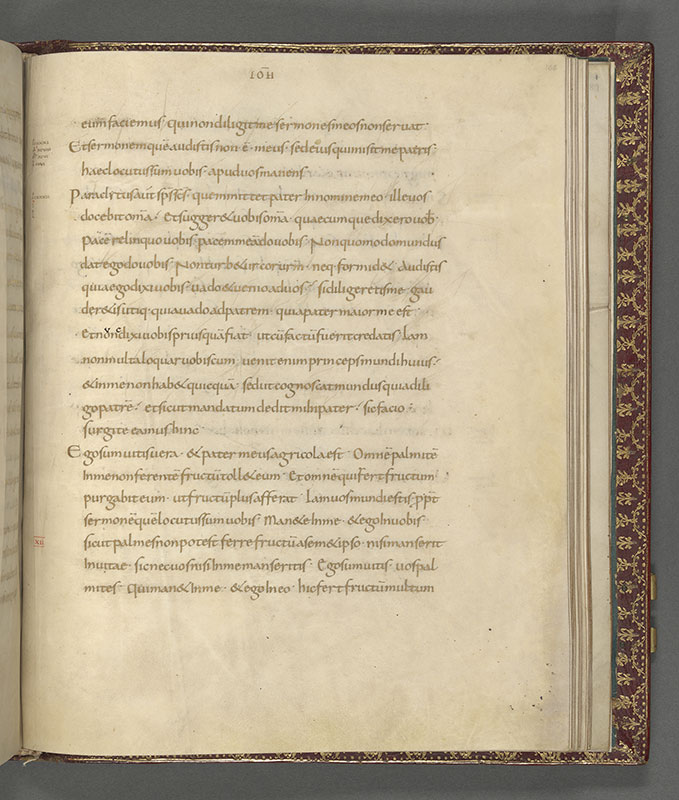 IOH̄
eum faciemus· qui non diligit me sermones meos non servat·
Et sermonem quē audistis non ē· meus· sed eius qui misit me patris·
haec locutus sum vobis· apud vos manens
Paraclitus aut̄ sp̄s sc̄s· quem mittet pater In nomine meo· ille vos
docebit om̄a· Et sugger& vobis om̄a· quaecumque dixero vob̄·
Pacē relinquo vobis· pacem meā do vobis· Non quomodo mundus
dat ego do vobis· Non turb&ur cor urm̄· neq· formid&· Audistis
quia ego dixi vobis· vado & venio ad vos· si diligeretis me· gau
der&is utiq· quia vado ad patrem· quia pater maior me est·
et nunc dixi vobis prius quā fiat· ut cū factū fuerit credatis· Iam
non multa loquar vobiscum· venit enim princeps mundi huius·
& in me non hab& quicquā· sed ut cognoscat mundus quia dili
go patrē· et sicut mandatum dedit mihi pater· sic facio·
surgite eamus hinc·
Ego sum vitis vera· & pater meus agricola est· Omnē palmitē
In me non ferentē fructū toll& eum· Et omnē qui fert fructum
purgabit eum· ut fructū plus afferat· Iam vos mundi estis· pp̄t
sermonē quē locutus sum vobis· Man&e In me· & ego In vobis·
sicut palmes non potest ferre fructū a sem&ipso· nisi manserit
In vitae· sic nec vos nisi In me manseritis· Ego sum vitis· vos pal
mites· Qui man& In me· & ego In eo· hic fert fructū multum
XII